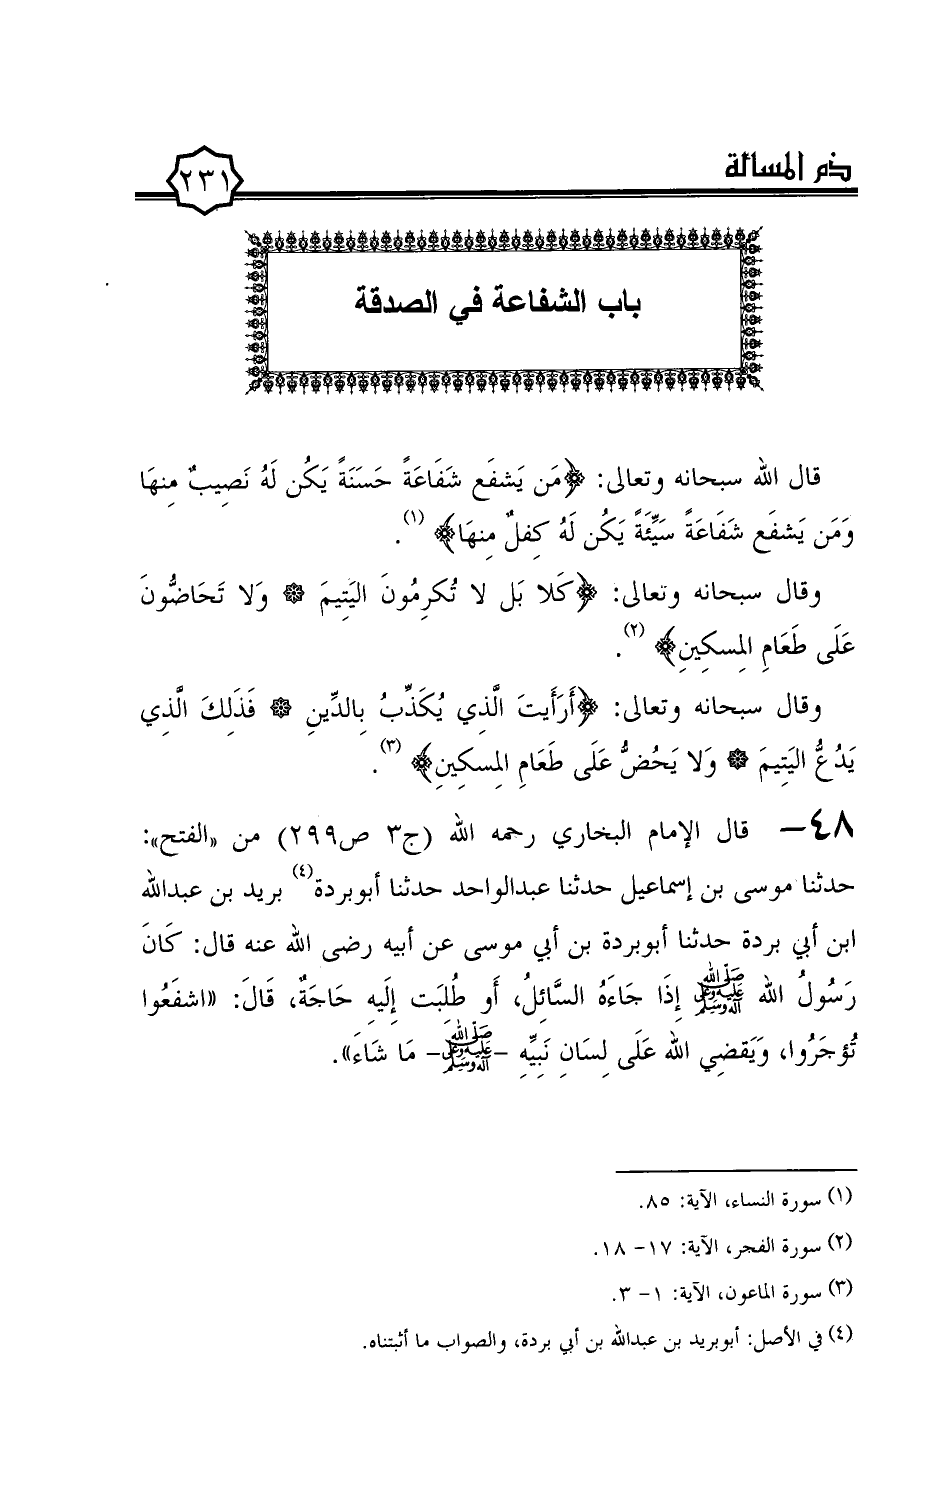 ذم المسالة
٢٣١
باب الشفاعة في الصدقة
قال الله سبحانه وتعالى: ﴿مَن يَشفَع شَفَاعَةً حَسَنَةً يَكُن لَهُ نَصِيبٌ مِنهَا
وَمَن يَشفَع شَفَاعَةً سَيِّئَةً يَكُن لَهُ كِفلٌ مِنهَا﴾ (١).
وقال سبحانه وتعالى: ﴿كَلا بَل لا تُكرِمُونَ اليَتِيمَ * وَلا تَحَاضُّونَ
عَلَى طَعَامِ المِسكِينِ﴾ (٢).
وقال سبحانه وتعالى: ﴿أَرَأَيتَ الَّذِي يُكَذِّبُ بِالدِّينِ * فَذَلِكَ الَّذِي
يَدُعُّ اليَتِيمَ * وَلا يَحُضُّ عَلَى طَعَامِ المِسكِينِ﴾ (٣).
٤٨- قال الإمام البخاري رحمه الله (ج٣ ص٢٩٩) من «الفتح»:
حدثنا موسى بن إسماعيل حدثنا عبدالواحد حدثنا أبوبردة(٤) بريد بن عبدالله
ابن أبي بردة حدثنا أبوبردة بن أبي موسى عن أبيه رضى الله عنه قال: كَانَ
رَسُولُ الله ﷺ إِذَا جَاءَهُ السَّائِلُ، أَو طُلِبَت إِلَيهِ حَاجَةٌ، قَالَ: «اشفَعُوا
تُؤجَرُوا، وَيَقضِي الله عَلَى لِسَانِ نَبِيِّهِ -ﷺ- مَا شَاءَ».
(١) سورة النساء، الآية: ٨٥.
(٢) سورة الفجر، الآية: ١٧- ١٨.
(٣) سورة الماعون، الآية: ١- ٣.
(٤) في الأصل: أبوبريد بن عبدالله بن أبي بردة، والصواب ما أثبتناه.